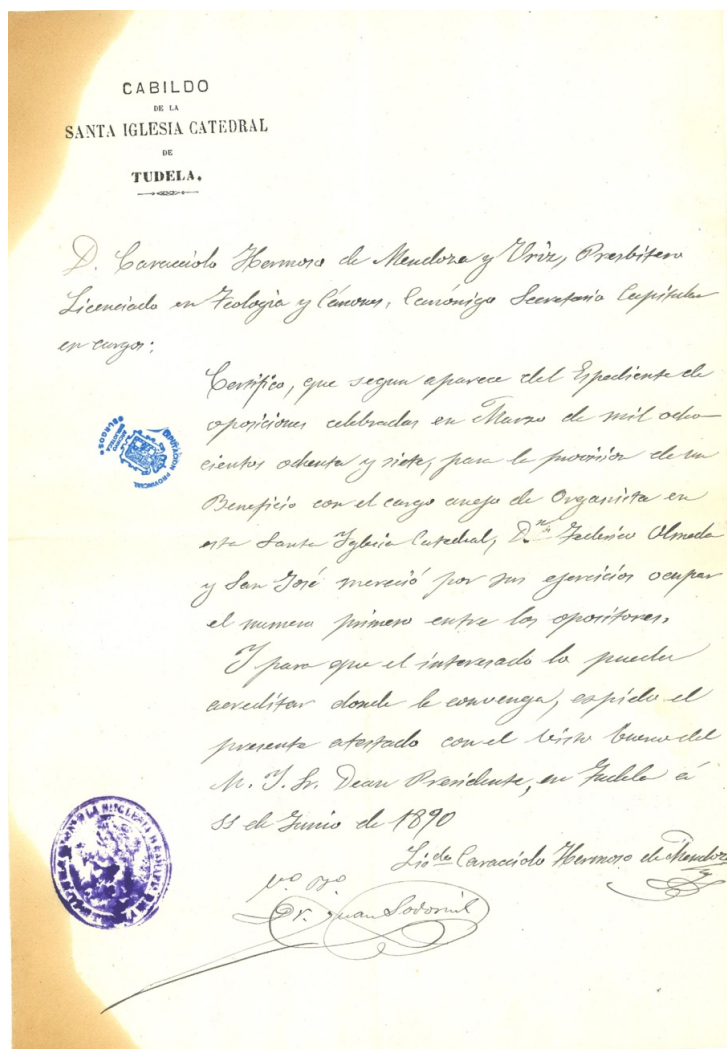 CABILDO
DE LA
SANTA IGLESIA CATEDRAL
DE
TUDELA.
D. Caracciolo Hermoso de Mendoza y Uriz, Presbitero
Licenciado en Teologia y Cánones, Canónigo Secretario Capitular
en cargos:
Certifico, que segun aparece del Espediente de
oposiciones celebradas en Marzo de mil ocho-
cientos ochenta y siete, para la provision de un
Beneficio con el cargo anejo de Organista en
esta Santa Iglesia Catedral, D.n Federico Olmeda
y San José mereció por sus ejercicios ocupar
el numero primero entre los opositores.
Y para que el interesado lo pueda
acreditar donde le convenga, espido el
presente atestado con el visto bueno del
M. I. Sr. Dean Presidente, en Tudela á
de Junio de 1890
Licdo Caracciolo Hermoso de Mendoza
Vo. Bo.
Dr. Juan
DIPUTACION PROVINCIAL
BURGOS